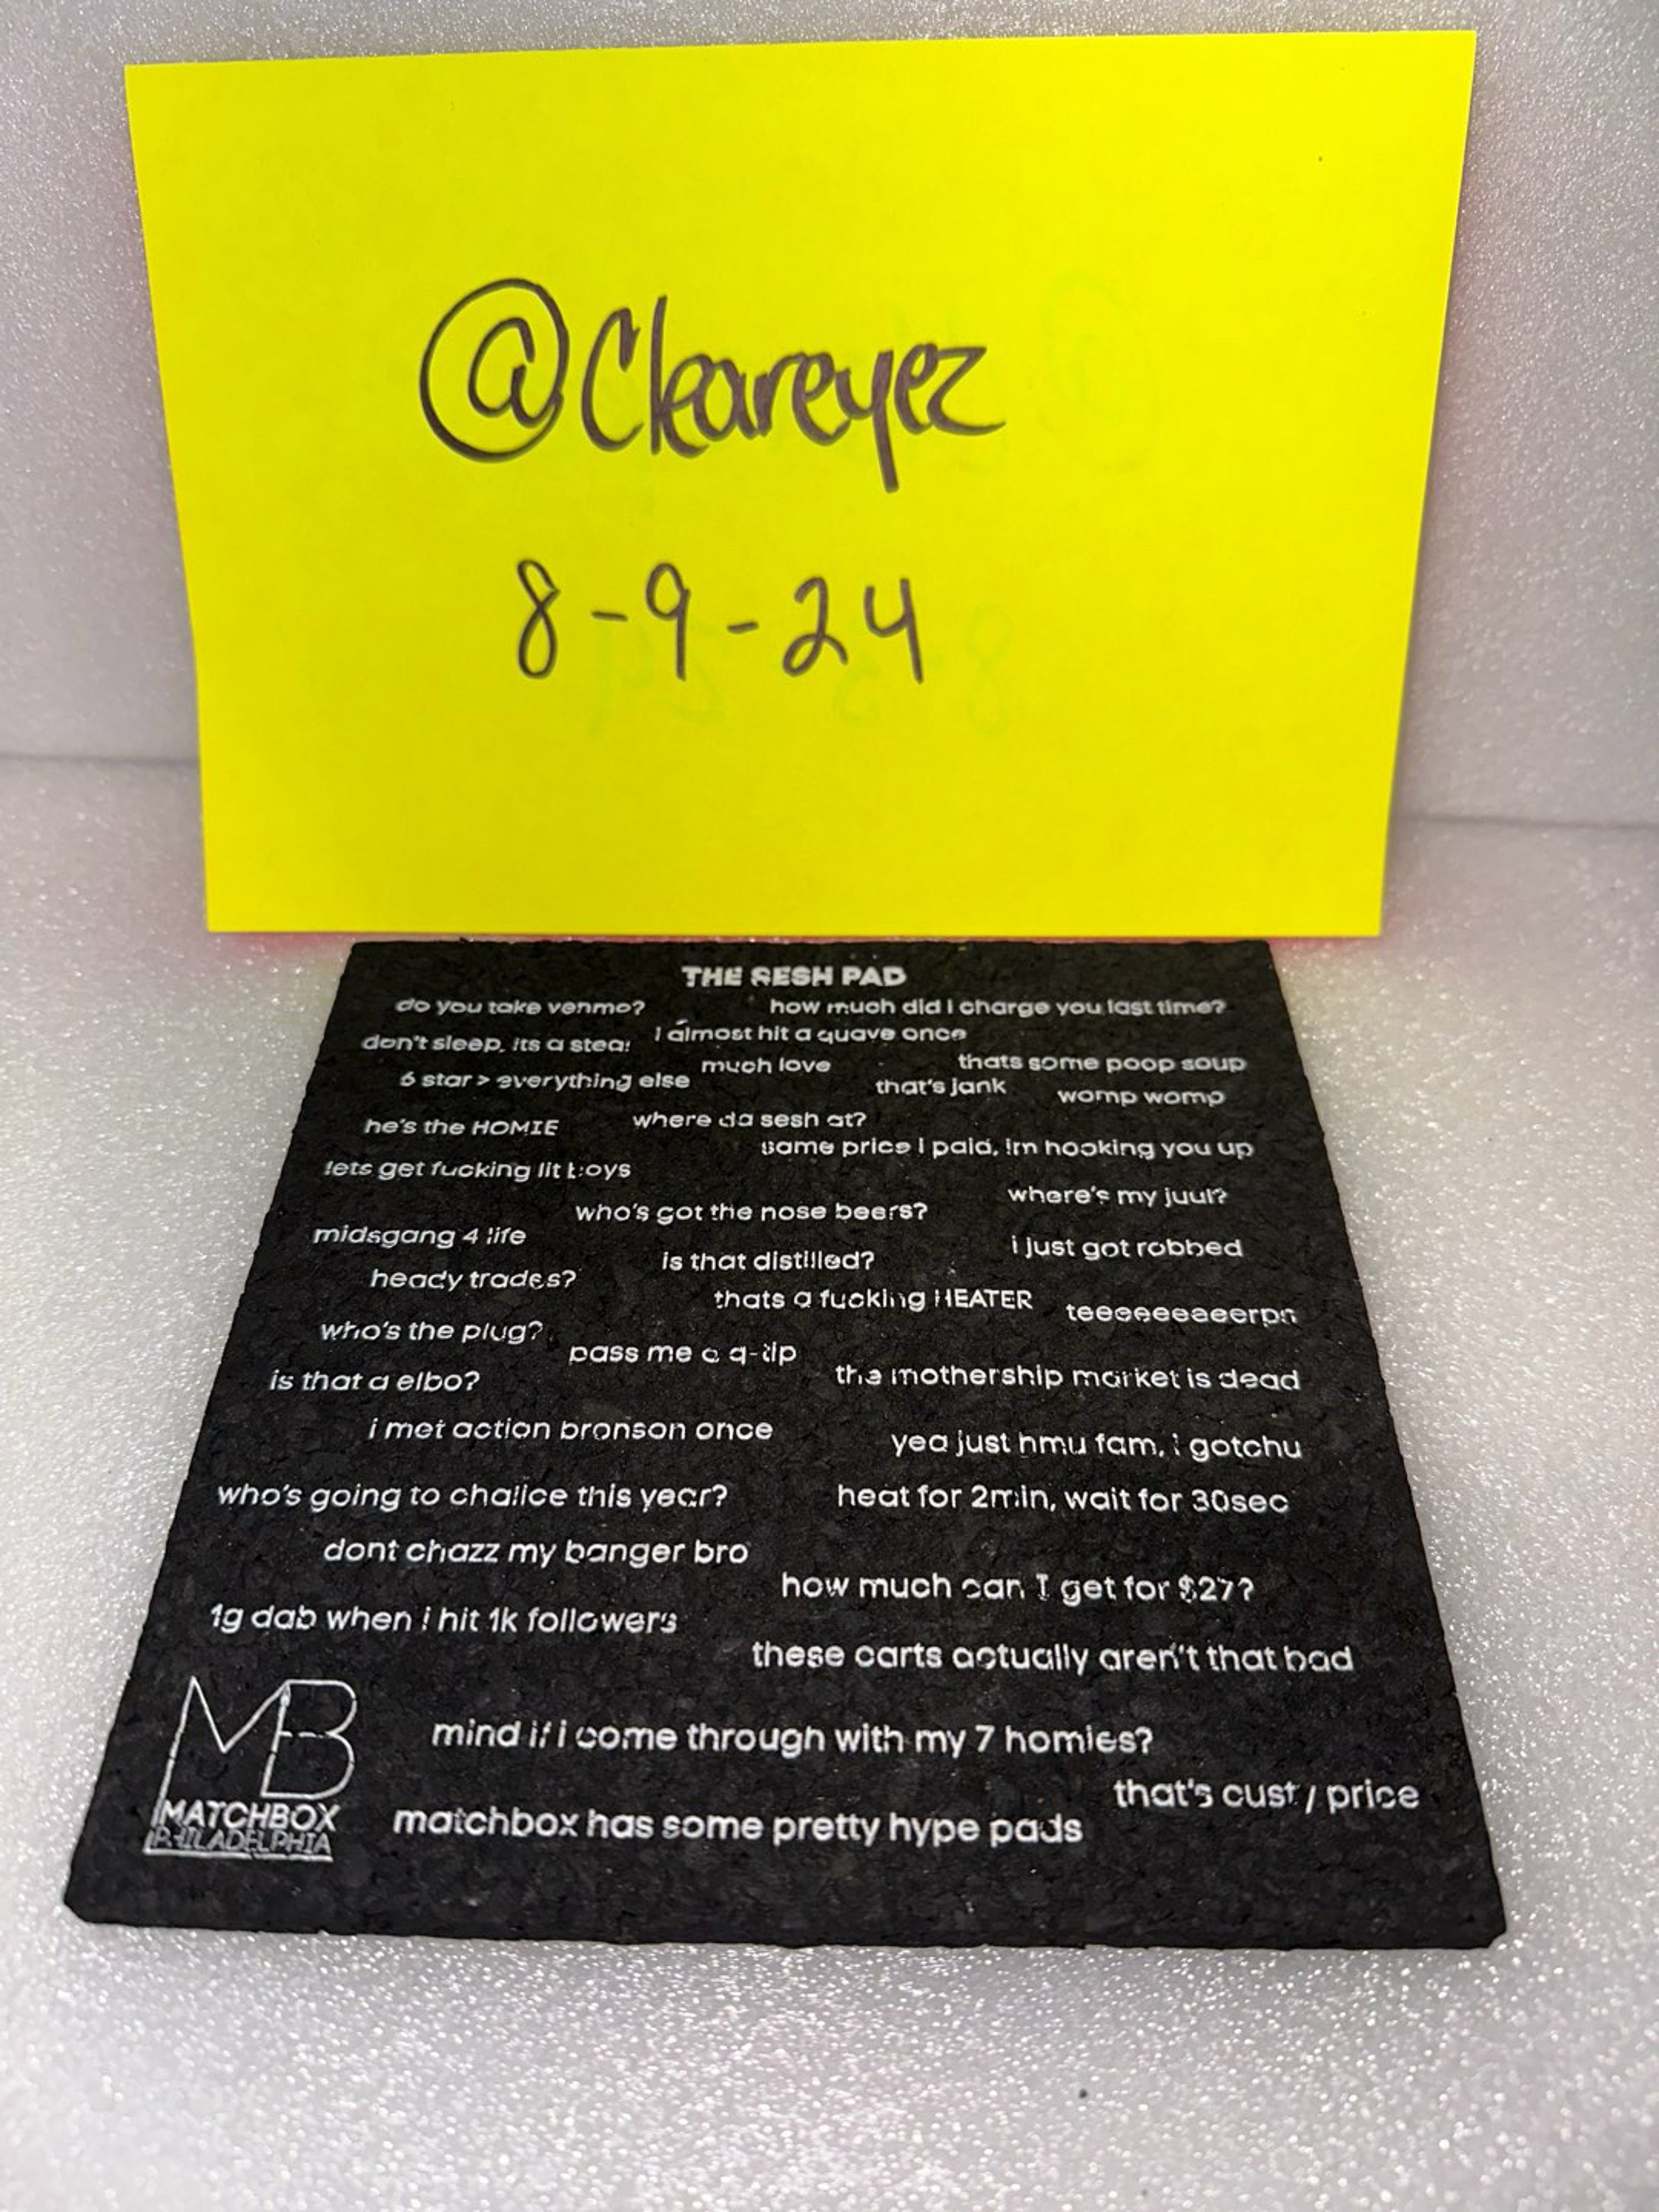 @Cleareyez
8-9-24
THE SESH PAD
do you take venmo?
how much did I charge you last time?
I almost hit a quave once
don't sleep, its a steal
much love
thats some poop soup
6 star > everything else
that's jank
womp womp
he's the HOMIE
where da sesh at?
same price I paid, im hooking you up
lets get fucking lit boys
where's my juul?
who's got the nose beers?
midsgang 4 life
i just got robbed
is that distilled?
heady trades?
thats a fucking HEATER
teeeeeeaeerpn
who's the plug?
pass me a q-tip
is that a elbo?
the mothership market is dead
i met action bronson once
yea just hmu fam, i gotchu
who's going to chalice this year?
heat for 2min, wait for 30sec
dont chazz my banger bro
how much can I get for $27?
1g dab when i hit 1k followers
these carts actually aren't that bad
MB
mind if i come through with my 7 homies?
that's custy price
MATCHBOX
PHILADELPHIA
matchbox has some pretty hype pads